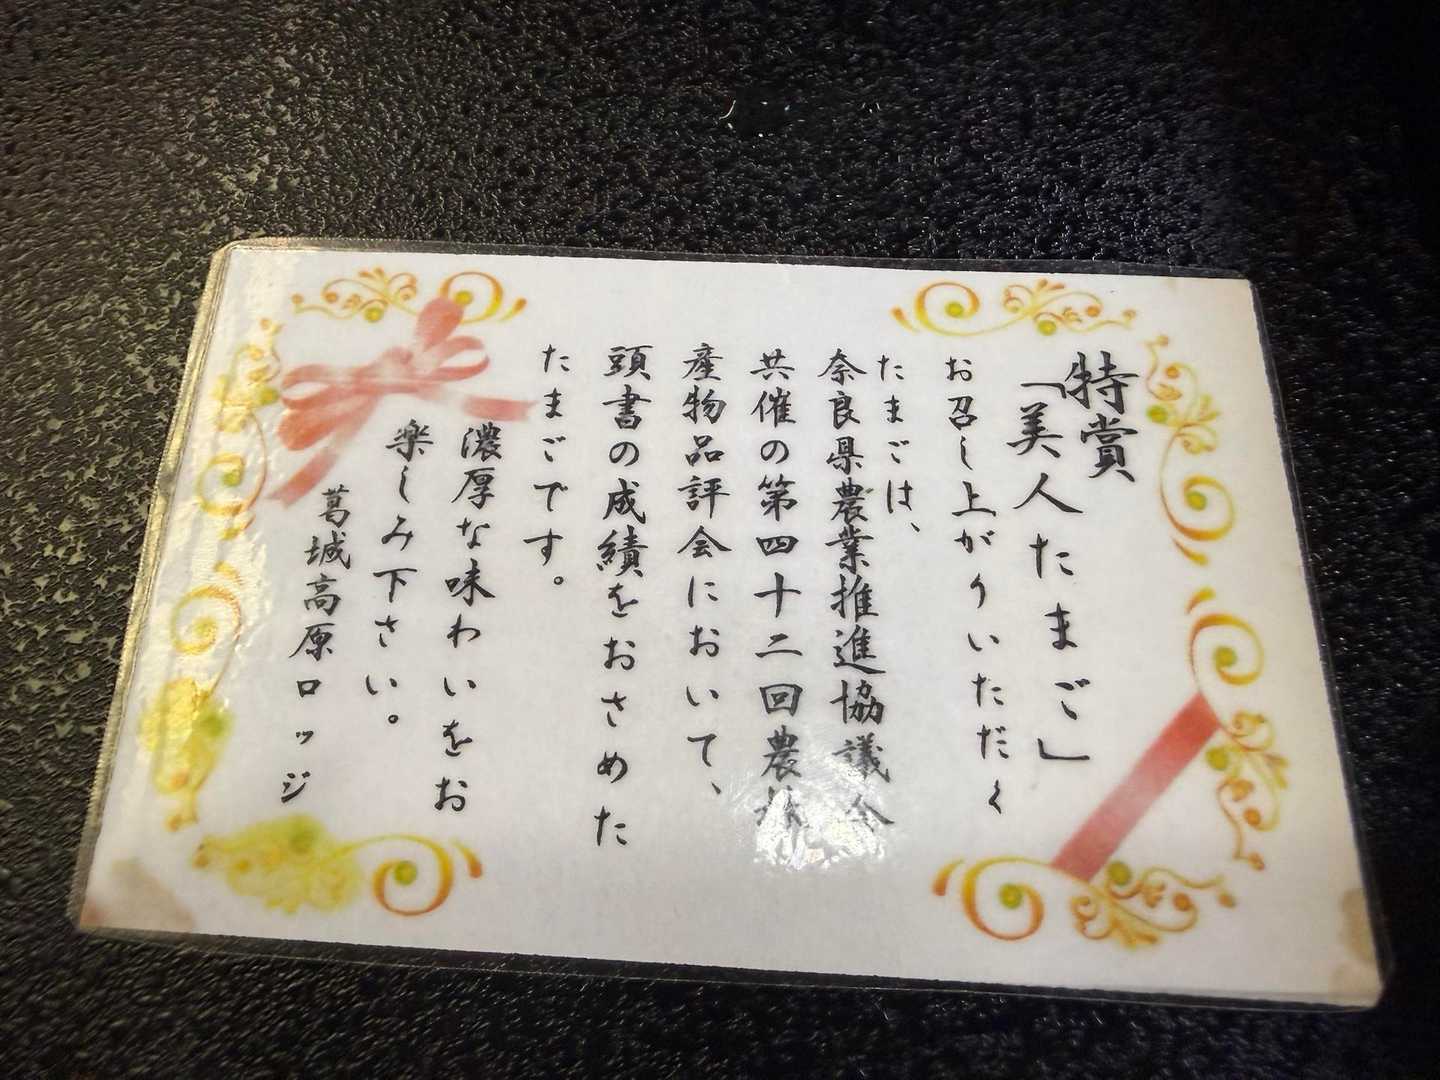 特賞
「美人たまご」
お召し上がりいただく
たまごは、
奈良県農業推進協議会
共催の第四十二回農林
産物品評会において、
頭書の成績をおさめた
たまごです。
濃厚な味わいをお
楽しみ下さい。
葛城高原ロッジ